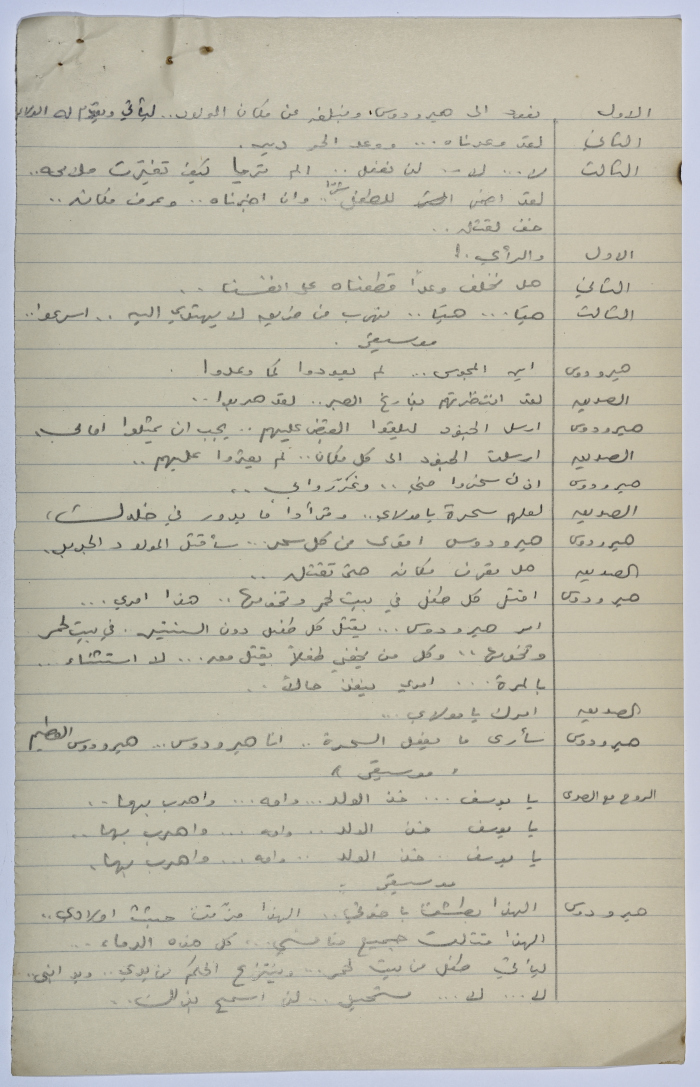 الاول نعود الى هيرودوس. ونبلغه عن مكان المولود.. ليأتي ويقدم له
الثاني لقد وعدناه... ووعد الحر دين.
الثالث لا... لا.. لن نفعل.. الم تريا كيف تغيرت ملامحه..
لقد اضمر للطفل شرا.. وان اخبرناه.. وعرف مكانه..
خف لقتله..
الاول والرأي..!
الثاني هل نخلف وعداً قطعناه على انفسنا..
الثالث هيا... هيا.. نهرب من طريق لا يهتدي اليه.. اسرعوا..
موسيقى.
هيرودوس اين المجوس... لم يعودوا كما وعدوا.
الصديق لقد انتظرتهم بفارغ الصبر.. لقد هربوا..
هيرودوس ارسل الجنود ليلقوا القبض عليهم.. يجب ان يمثلوا امامي..
الصديق ارسلت الجنود الى كل مكان.. لم يعثروا عليهم..
هيرودوس اذن سخروا مني.. وغرروا بي..
الصديق لعلهم سحرة يا مولاي.. وقرأوا ما يدور في خلدك..
هيرودوس هيرودوس اقوى من كل سحر... سأقتل المولود الجديد.
الصديق هل تعرف مكانه حتى تقتله..
هيرودوس اقتل كل طفل في بيت لحم وتخومها.. هذا امري...
امر هيرودوس... يقتل كل طفل دون السنتين. في بيت لحم
وتخومها.. وكل من يخفي طفلاً يقتل معه... لا استثناء...
بالمرة... امري ينفذ حالاً..
الصديق امرك يا مولاي...
هيرودوس سأرى ما يفعل السحرة.. انا هيرودوس... هيرودوس العظيم
" موسيقى "
الروح مع الصدى يا يوسف... خذ الولد... وامه... واهرب بهما..
يا يوسف خذ الولد.. وامه... واهرب بهما..
يا يوسف. خذ الولد.. وامه... واهرب بهما.
موسيقى..
هيرودوس الهذا بطشت باخوتي.. الهذا مزقت جثث اولادي..
الهذا قتلت جميع منافسي... كل هذه الدماء...
ليأتي طفل من بيت لحم... وينتزع الحكم من يدي.. ويد ابني..
لا... لا... مستحيل... لن اسمح بذلك..